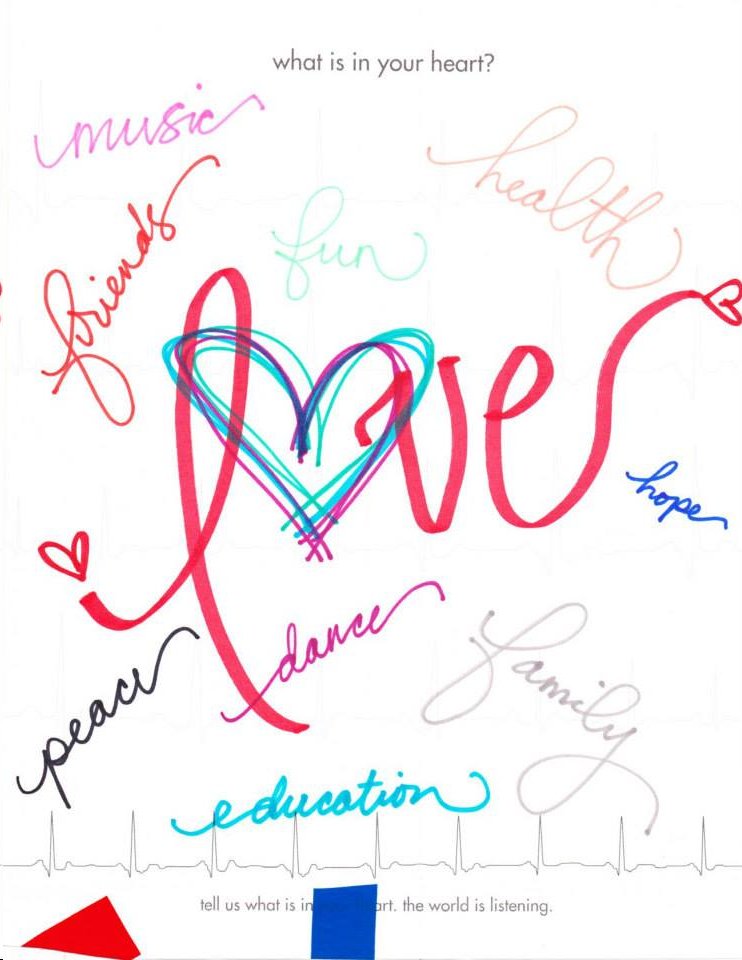 what is in your heart?
music
health
friends
fun
love
hope
dance
peace
family
education
tell us what is in your heart. the world is listening.